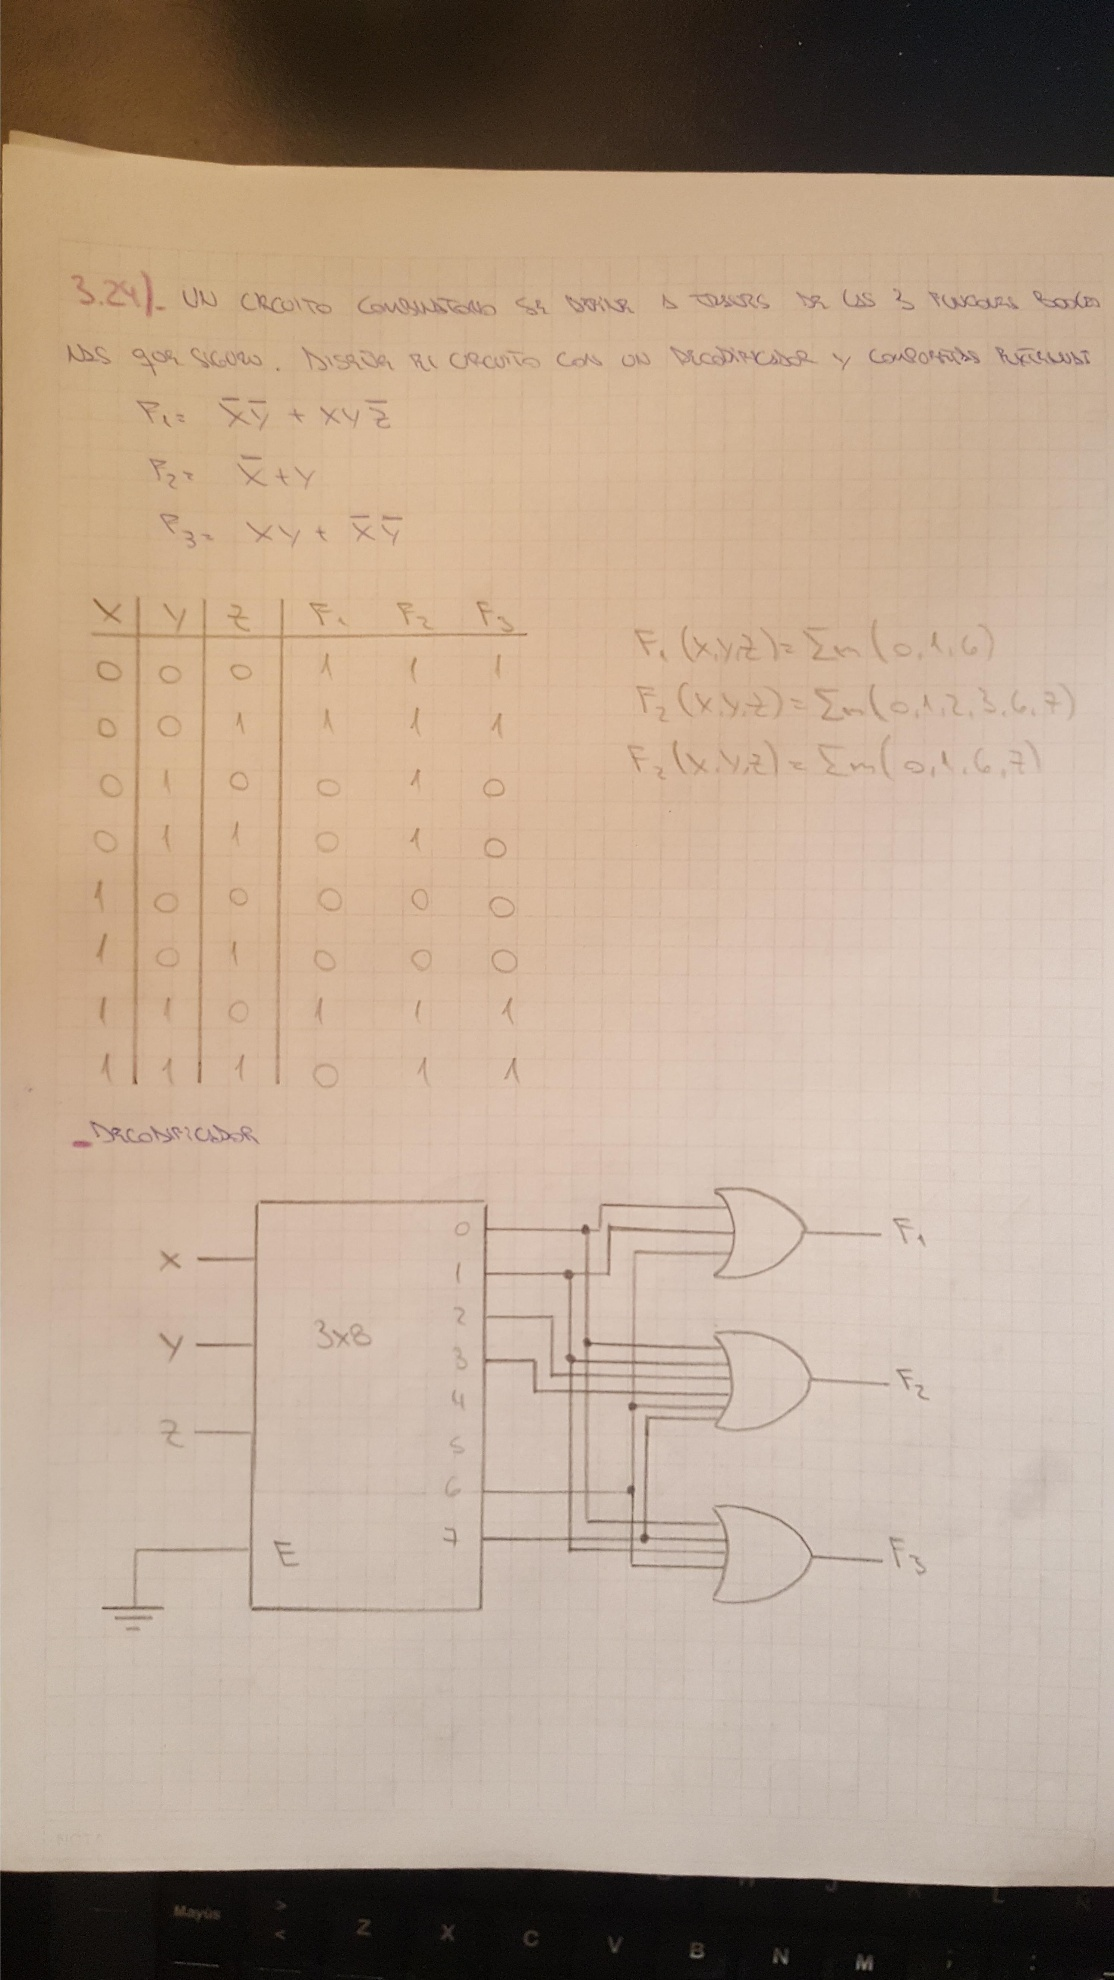 3.24).- UN CIRCUITO COMBINATORIO SE DEFINE A TRAVÉS DE LAS 3 FUNCIONES BOOLEA
NAS QUE SIGUEN. DISEÑAR EL CIRCUITO CON UN DECODIFICADOR Y COMPUERTAS EXTERNAS
F₁= X̅Y̅ + XYZ̅
F₂= X̅+Y
F₃= XY + X̅Y̅
X Y Z F₁ F₂ F₃
0 0 0 1 1 1
0 0 1 1 1 1
0 1 0 0 1 0
0 1 1 0 1 0
1 0 0 0 0 0
1 0 1 0 0 0
1 1 0 1 1 1
1 1 1 0 1 1
F₁(X,Y,Z)= Σm(0,1,6)
F₂(X,Y,Z)= Σm(0,1,2,3,6,7)
F₂(X,Y,Z)= Σm(0,1,6,7)
- DECODIFICADOR
X
Y
Z
E
3x8
0
1
2
3
4
5
6
7
F₁
F₂
F₃
Mayús > < Z X C V B N M ; :